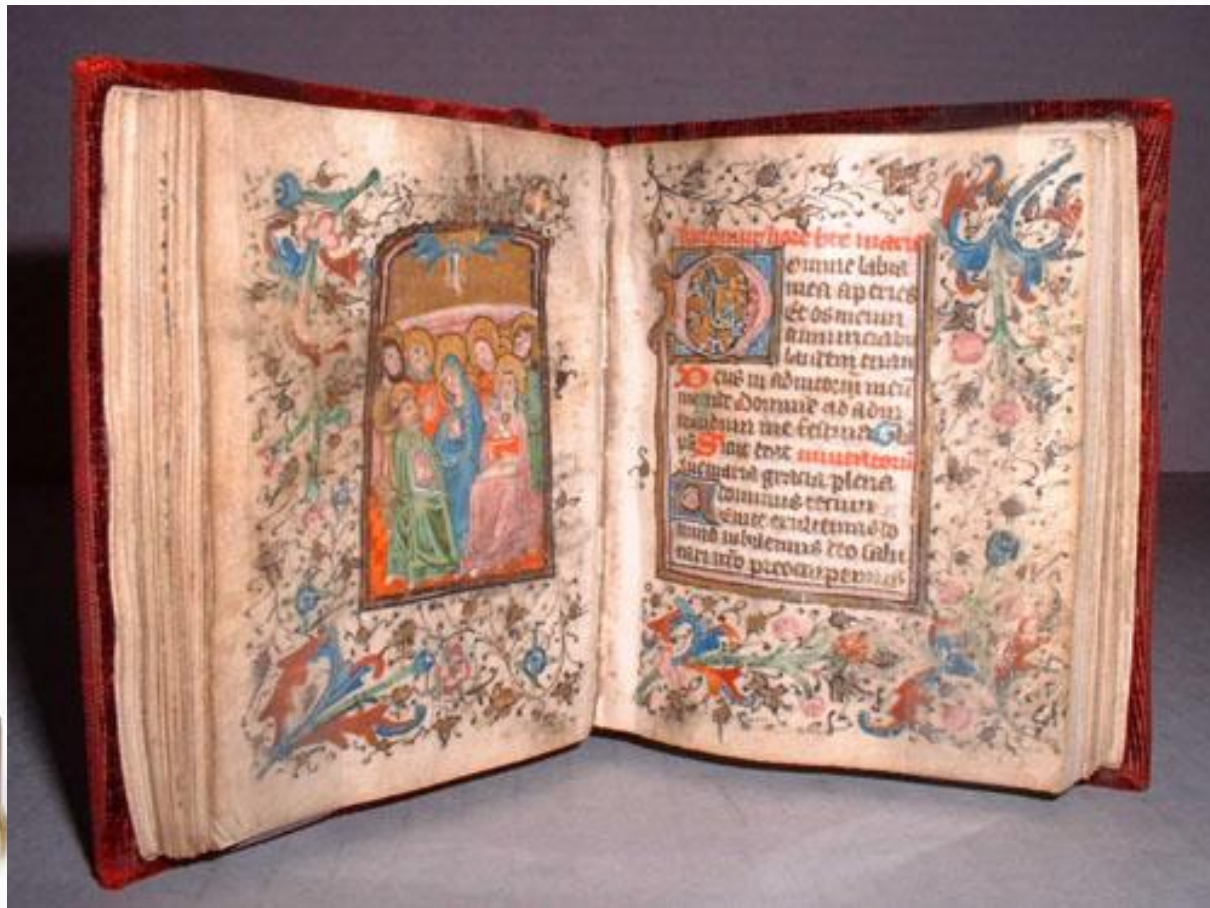 hore bte marie
Domine labia
mea aperies
et os meum
annunciabit
laudem tuam
Deus in adiutoriu meu
intende Domine ad adiu
uandum me festina Glia
Sicut erat
Aue maria gracia plena
dominus tecum
Uenite exultemus do
mino iubilemus deo salu
tari nro preoccupemus